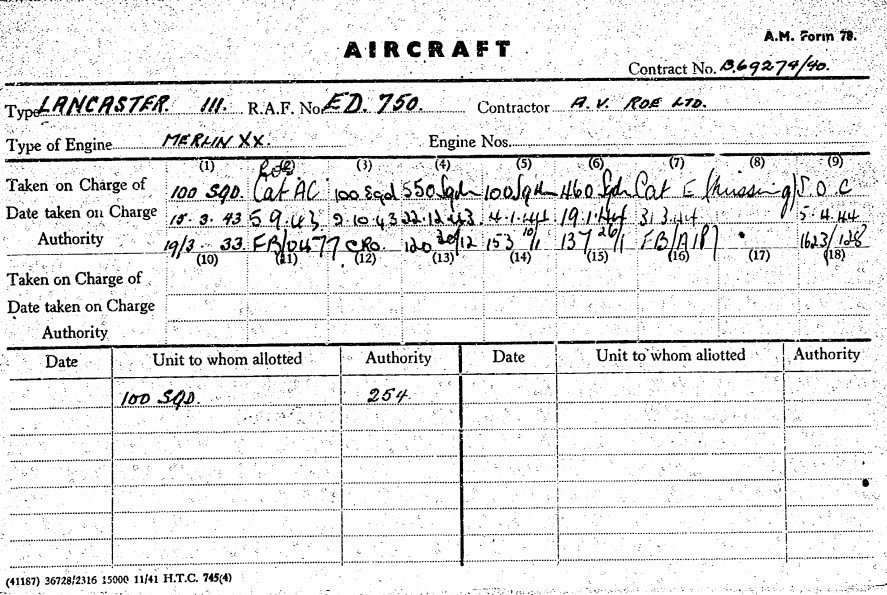 A.M. Form 78.
AIRCRAFT
Contract No. B.69274/40.
Type LANCASTER. III. R.A.F. No. ED. 750. Contractor A. V. ROE LTD.
Type of Engine MERLIN XX. Engine Nos.
(1) (2) (3) (4) (5) (6) (7) (8) (9)
Taken on Charge of 100 SQD. Cat AC 100 Sqd 550 Sqdn 100 Sqdn 460 Sqdn Cat E (missing) S.O.C
Date taken on Charge 15.3.43 5 9.43 2.10.43 22.12.43 4.1.44 19.1.44 31.3.44 5.4.44
Authority 19/3 33. FB/D477 CRO. 120 30/12 153 10/1 137 26/1 FB/A1P7 1623/128
(10) (11) (12) (13) (14) (15) (16) (17) (18)
Taken on Charge of
Date taken on Charge
Authority
Date Unit to whom allotted Authority Date Unit to whom allotted Authority
100 SQD. 254
(41187) 36728/2316 15000 11/41 H.T.C. 745(4)